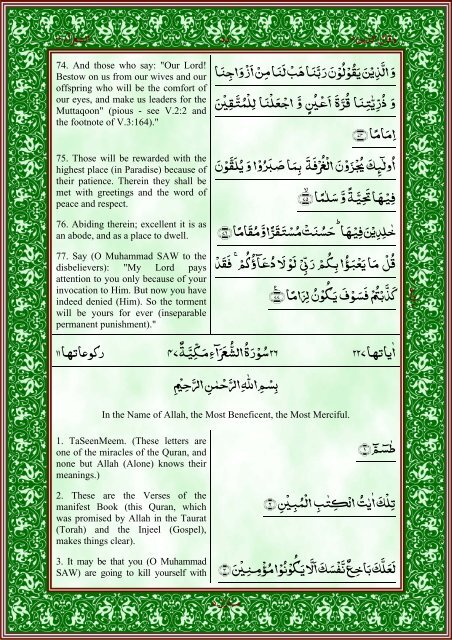 74. And those who say: "Our Lord!
Bestow on us from our wives and our
offspring who will be the comfort of
our eyes, and make us leaders for the
Muttaqoon" (pious - see V.2:2 and
the footnote of V.3:164)."
وَالَّذِيْنَ يَقُوْلُوْنَ رَبَّنَا هَبْ لَنَا مِنْ اَزْوَاجِنَا
وَ ذُرِّيّٰتِنَا قُرَّةَ اَعْيُنٍ وَّ اجْعَلْنَا لِلْمُتَّقِيْنَ
اِمَامًا ۝٧٤
75. Those will be rewarded with the
highest place (in Paradise) because of
their patience. Therein they shall be
met with greetings and the word of
peace and respect.
اُولٰٓئِكَ يُجْزَوْنَ الْغُرْفَةَ بِمَا صَبَرُوْا وَ يُلَقَّوْنَ
فِيْهَا تَحِيَّةً وَّ سَلٰمًا ۝٧٥
76. Abiding therein; excellent it is as
an abode, and as a place to dwell.
خٰلِدِيْنَ فِيْهَا ؕ حَسُنَتْ مُسْتَقَرًّا وَّ مُقَامًا ۝٧٦
77. Say (O Muhammad SAW to the
disbelievers): "My Lord pays
attention to you only because of your
invocation to Him. But now you have
indeed denied (Him). So the torment
will be yours for ever (inseparable
permanent punishment)."
قُلْ مَا يَعْبَؤُا بِكُمْ رَبِّيْ لَوْلَا دُعَآؤُكُمْ ۚ فَقَدْ
كَذَّبْتُمْ فَسَوْفَ يَكُوْنُ لِزَامًا ۝٧٧
اٰياتها ٢٢٧ ٢٦ سُوْرَةُ الشُّعَرَآءِ مَكِّيَّةٌ ٤٧ ركوعاتها ١١
بِسْمِ اللّٰهِ الرَّحْمٰنِ الرَّحِيْمِ
In the Name of Allah, the Most Beneficent, the Most Merciful.
1. TaSeenMeem. (These letters are
one of the miracles of the Quran, and
none but Allah (Alone) knows their
meanings.)
طٰسٓمّٓ ۝١
2. These are the Verses of the
manifest Book (this Quran, which
was promised by Allah in the Taurat
(Torah) and the Injeel (Gospel),
makes things clear).
تِلْكَ اٰيٰتُ الْكِتٰبِ الْمُبِيْنِ ۝٢
3. It may be that you (O Muhammad
SAW) are going to kill yourself with
لَعَلَّكَ بَاخِعٌ نَّفْسَكَ اَلَّا يَكُوْنُوْا مُؤْمِنِيْنَ ۝٣